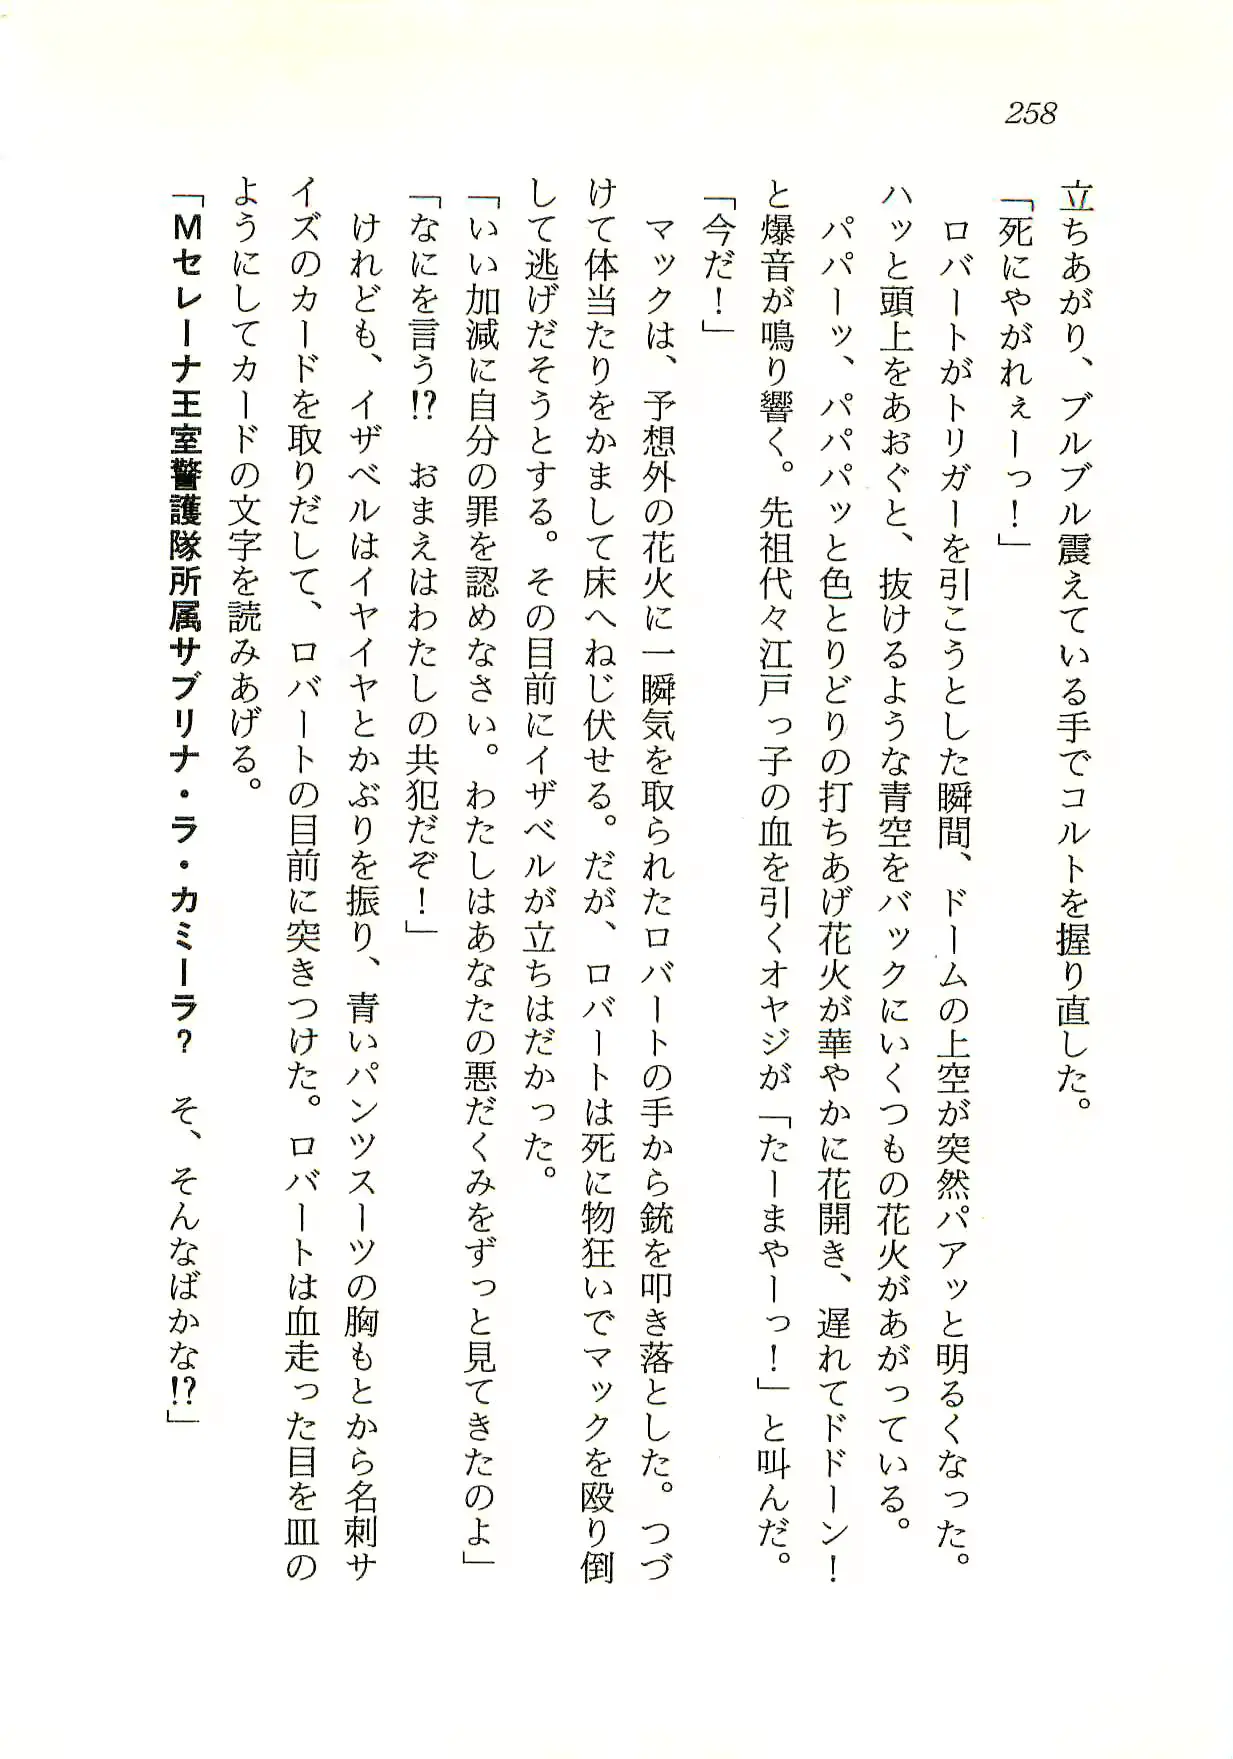 258
立ちあがり、ブルブル震えている手でコルトを握り直した。
「死にやがれぇーっ！」
　ロバートがトリガーを引こうとした瞬間、ドームの上空が突然パアッと明るくなった。
ハッと頭上をあおぐと、抜けるような青空をバックにいくつもの花火があがっている。
　パパーッ、パパパッと色とりどりの打ちあげ花火が華やかに花開き、遅れてドドーン！
と爆音が鳴り響く。先祖代々江戸っ子の血を引くオヤジが「たーまやーっ！」と叫んだ。
「今だ！」
　マックは、予想外の花火に一瞬気を取られたロバートの手から銃を叩き落とした。つづ
けて体当たりをかまして床へねじ伏せる。だが、ロバートは死に物狂いでマックを殴り倒
して逃げだそうとする。その目前にイザベルが立ちはだかった。
「いい加減に自分の罪を認めなさい。わたしはあなたの悪だくみをずっと見てきたのよ」
「なにを言う!?　おまえはわたしの共犯だぞ！」
　けれども、イザベルはイヤイヤとかぶりを振り、青いパンツスーツの胸もとから名刺サ
イズのカードを取りだして、ロバートの目前に突きつけた。ロバートは血走った目を皿の
ようにしてカードの文字を読みあげる。
「Ｍセレーナ王室警護隊所属サブリナ・ラ・カミーラ？　そ、そんなばかな!?」